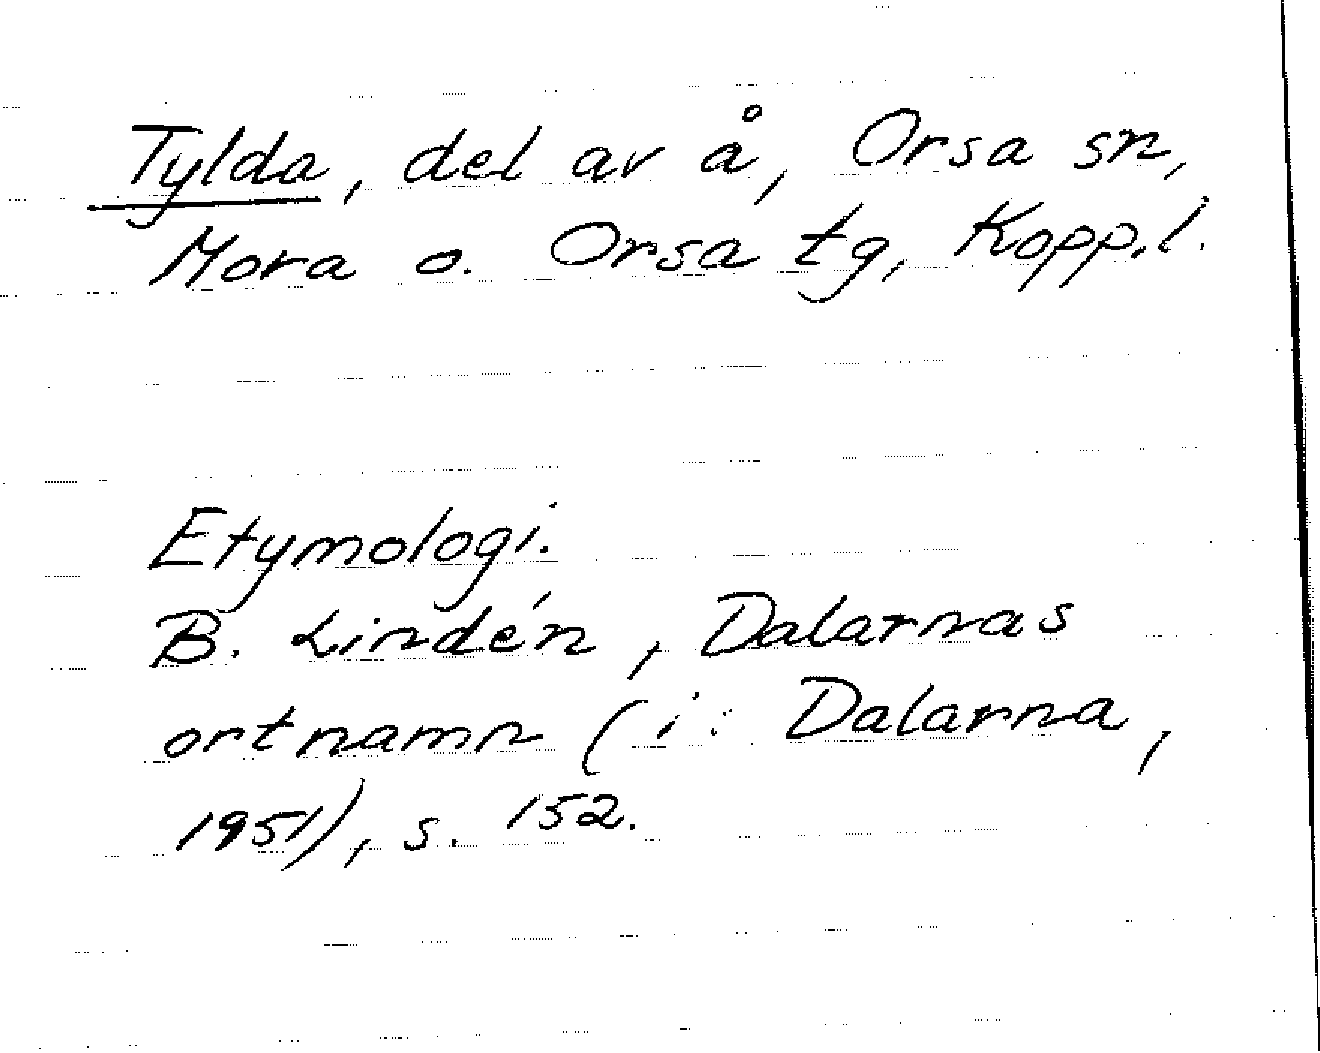 Tylda, del av å, Orsa sn,
Mora o. Orsa tg, Kopp.l.
Etymologi.
B. Lindén, Dalarnas
ortnamn (i: Dalarna,
1951), s. 152.